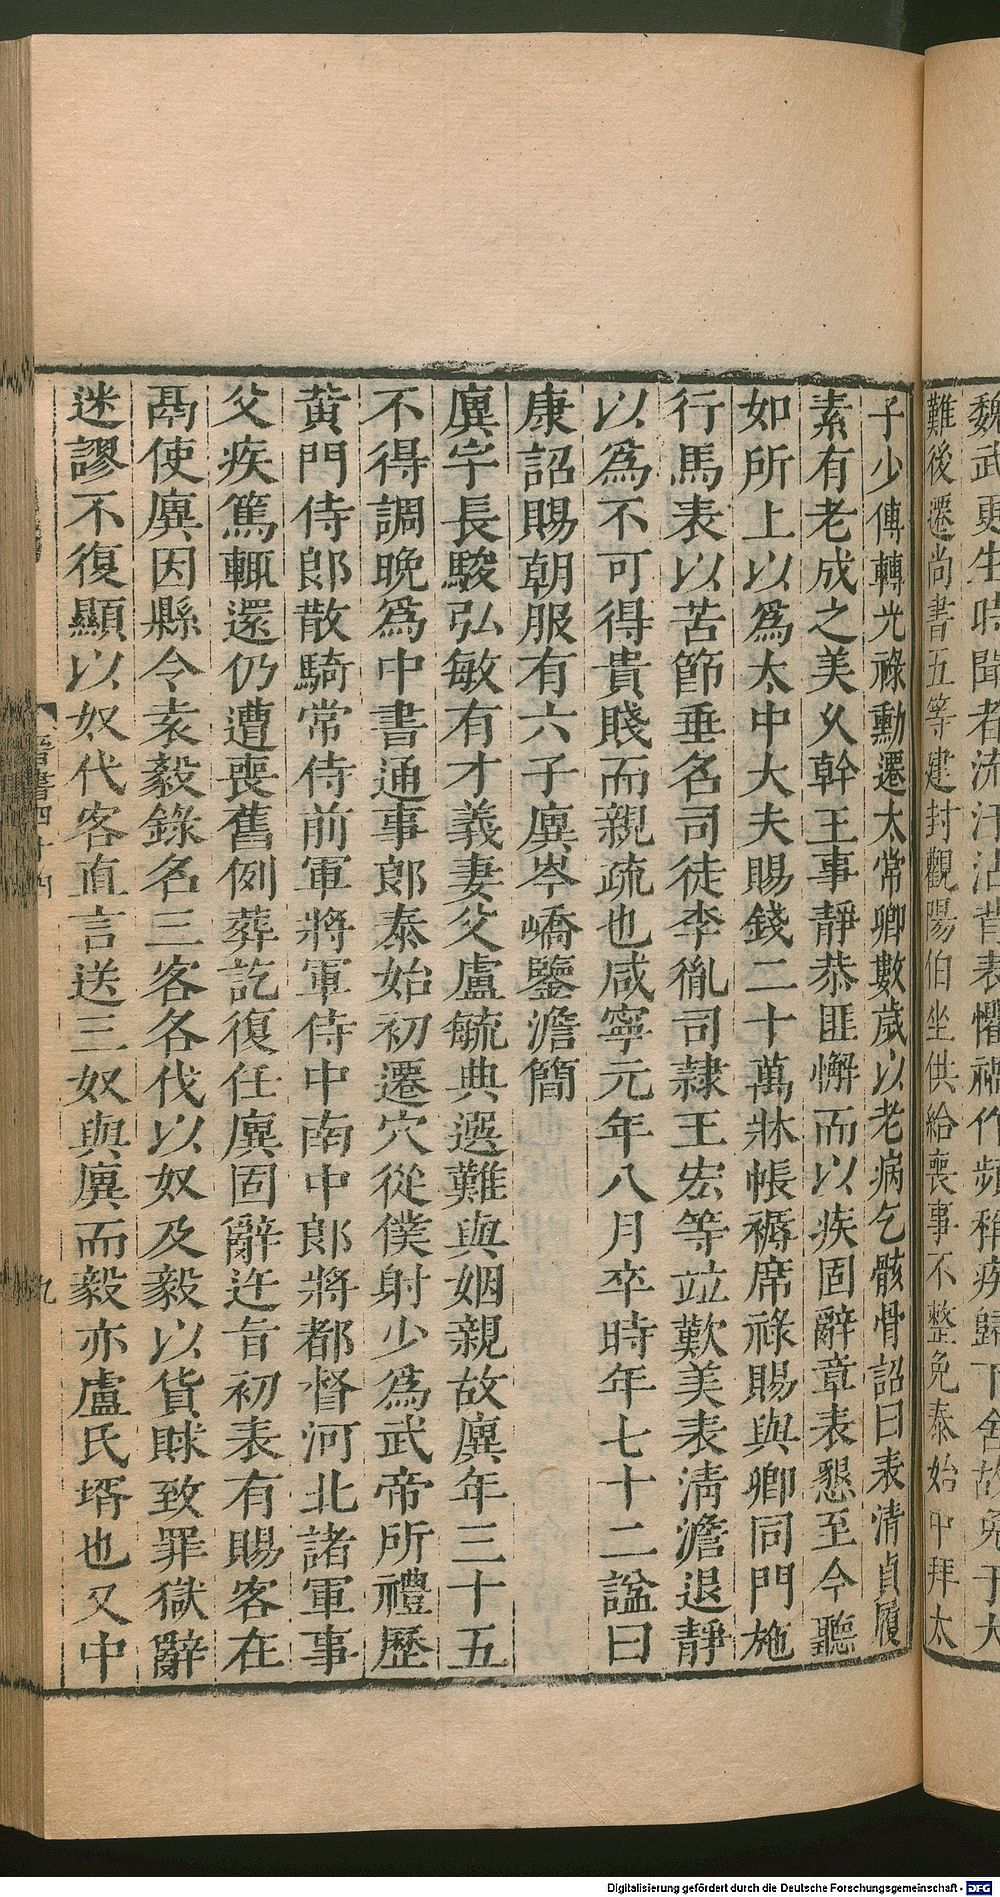 魏武更生時聞者流汗沾背表懼禍作頻稱疾歸下舍故免于大
難後遷尚書五等建封觀陽伯坐供給喪事不整免泰始中拜太
子少傅轉光祿勳遷太常卿數歲以老病乞骸骨詔曰表清貞履
素有老成之美乆幹王事靜恭匪懈而以疾固辭章表懇至今聽
如所上以爲太中大夫賜錢二十萬牀帳褥席祿賜與卿同門施
行馬表以苦節垂名司徒李胤司隷王宏等竝歎美表清澹退靜
以爲不可得貴賤而親疏也咸寧元年八月卒時年七十二諡曰
康詔賜朝服有六子廙岑嶠鑒澹簡
廙字長駿弘敏有才義妻父盧毓典選難與姻親故廙年三十五
不得調晚爲中書通事郎泰始初遷冗從僕射少爲武帝所禮歷
黄門侍郎散騎常侍前軍將軍侍中南中郎將都督河北諸軍事
父疾篤輒還仍遭喪舊例葬訖復任廙固辭迕旨初表有賜客在
鬲使廙因縣令袁毅錄名三客各代以奴及毅以貨賕致罪獄辭
迷謬不復顯以奴代客直言送三奴與廙而毅亦盧氏壻也又中
晉書四十四
九
Digitalisierung gefördert durch die Deutsche Forschungsgemeinschaft - DFG